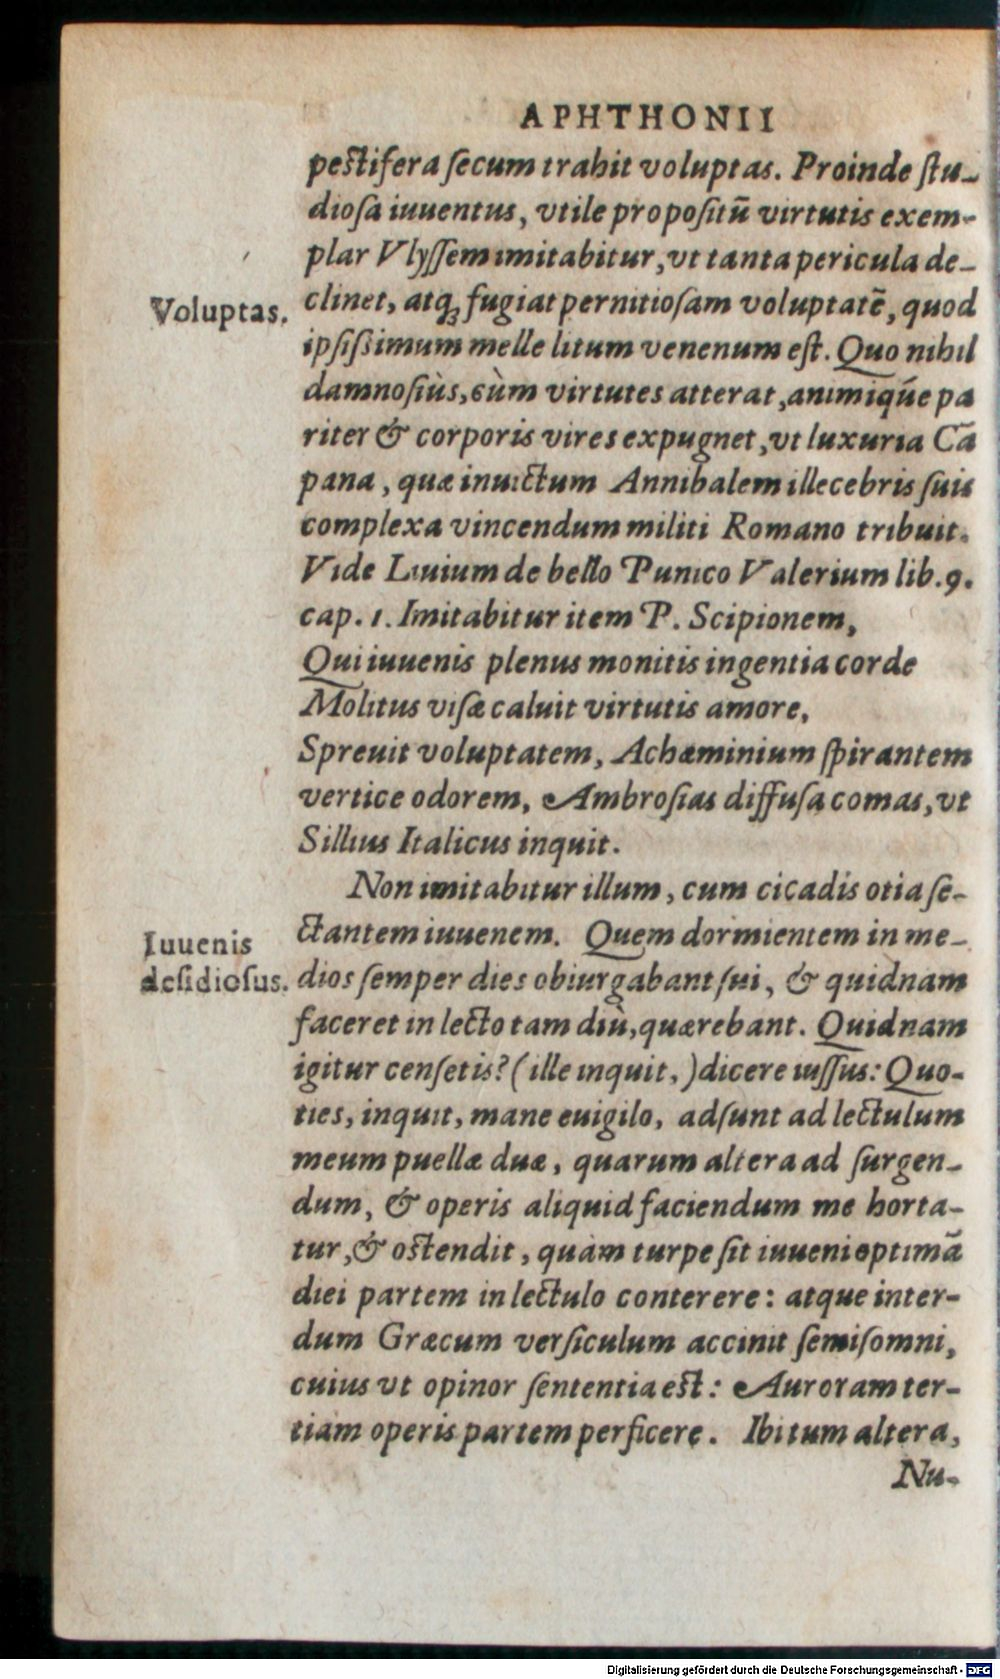 APHTHONII
pestifera ſecum trahit voluptas. Proinde ſtu-
dioſa iuuentus, vtile propoſitū virtutis exem-
plar Vlyſſem imitabitur, vt tanta pericula de-
Voluptas.
clinet, atq; fugiat pernitioſam voluptatē, quod
ipſiſsimum melle litum venenum eſt. Quo nihil
damnoſiùs, cùm virtutes atterat, animiq́ue pa
riter & corporis vires expugnet, vt luxuria Cā
pana, quæ inuictum Annibalem illecebris ſuis
complexa vincendum militi Romano tribuit.
Vide Liuium de bello Punico Valerium lib. 9.
cap. 1. Imitabitur item P. Scipionem,
Qui iuuenis plenus monitis ingentia corde
Molitus viſæ caluit virtutis amore,
Spreuit voluptatem, Achæminium ſpirantem
vertice odorem, Ambroſias diffuſa comas, vt
Sillius Italicus inquit.
Non imitabitur illum, cum cicadis otia ſe-
Iuuenis
deſidioſus.
ctantem iuuenem. Quem dormientem in me-
dios ſemper dies obiurgabant ſui, & quidnam
faceret in lecto tam diù, quærebant. Quidnam
igitur cenſetis? (ille inquit,) dicere iuſſus: Quo-
ties, inquit, mane euigilo, adſunt ad lectulum
meum puellæ duæ, quarum altera ad ſurgen-
dum, & operis aliquid faciendum me horta-
tur, & oſtendit, quàm turpe ſit iuueni optimā
diei partem in lectulo conterere: atque inter-
dum Græcum verſiculum accinit ſemiſomni,
cuius vt opinor ſententia eſt: Auroram ter-
tiam operis partem perficere. Ibi tum altera,
Nu-
Digitalisierung gefördert durch die Deutsche Forschungsgemeinschaft - DFG